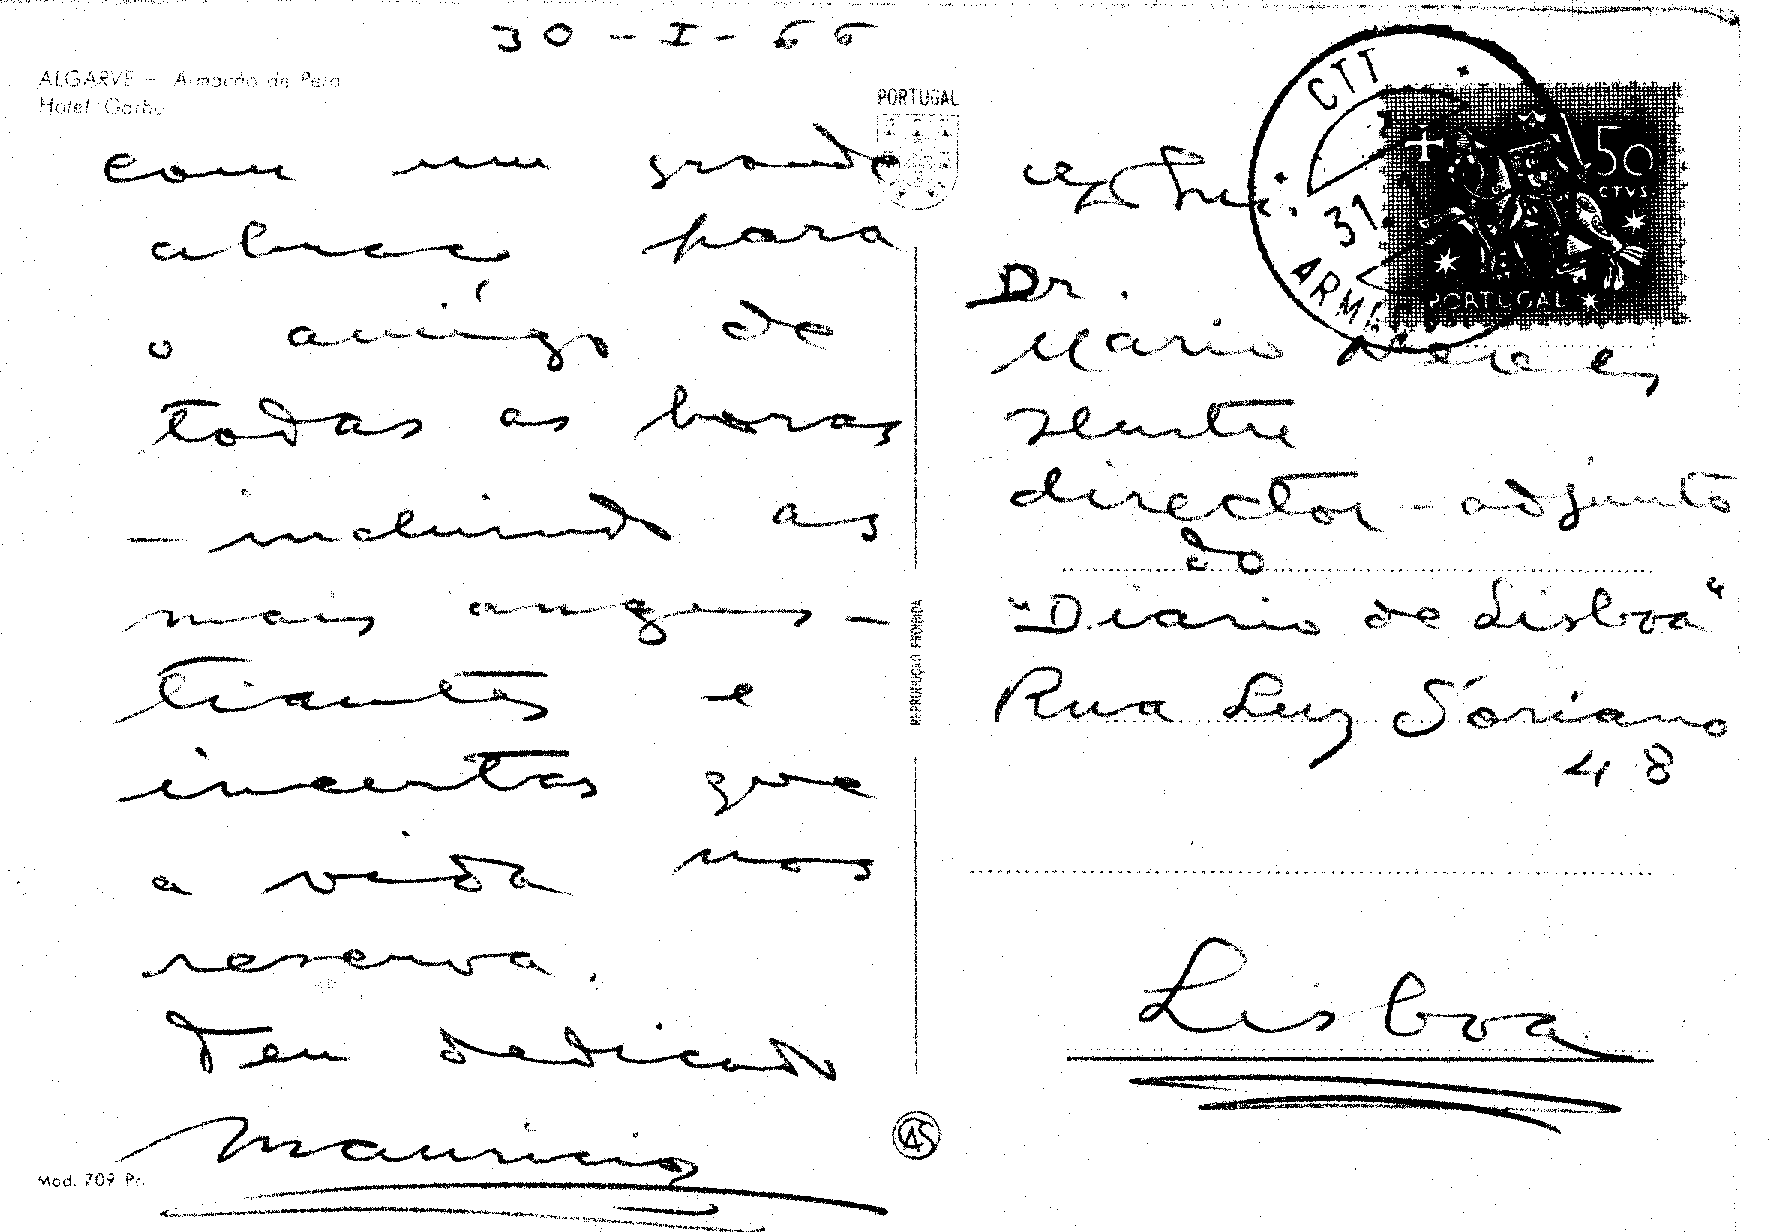 30-I-66
ALGARVE - Armação de Pera
Hotel Garbe
com um grande
abraço para
o amigo de
todas as horas
- incluindo as
mais angus-
tiantes e
incertas que
a vida nos
reserva.
Teu dedicado
Mauricio
Mod. 709 Pr.
PORTUGAL
REPRODUÇÃO PROIBIDA
CAS
CTT
31
ARM
50
CTVS
PORTUGAL
Dr.
Mario Neves
Ilustre
director-adjunto
do
"Diario de Lisboa"
Rua Luz Soriano
48
Lisboa